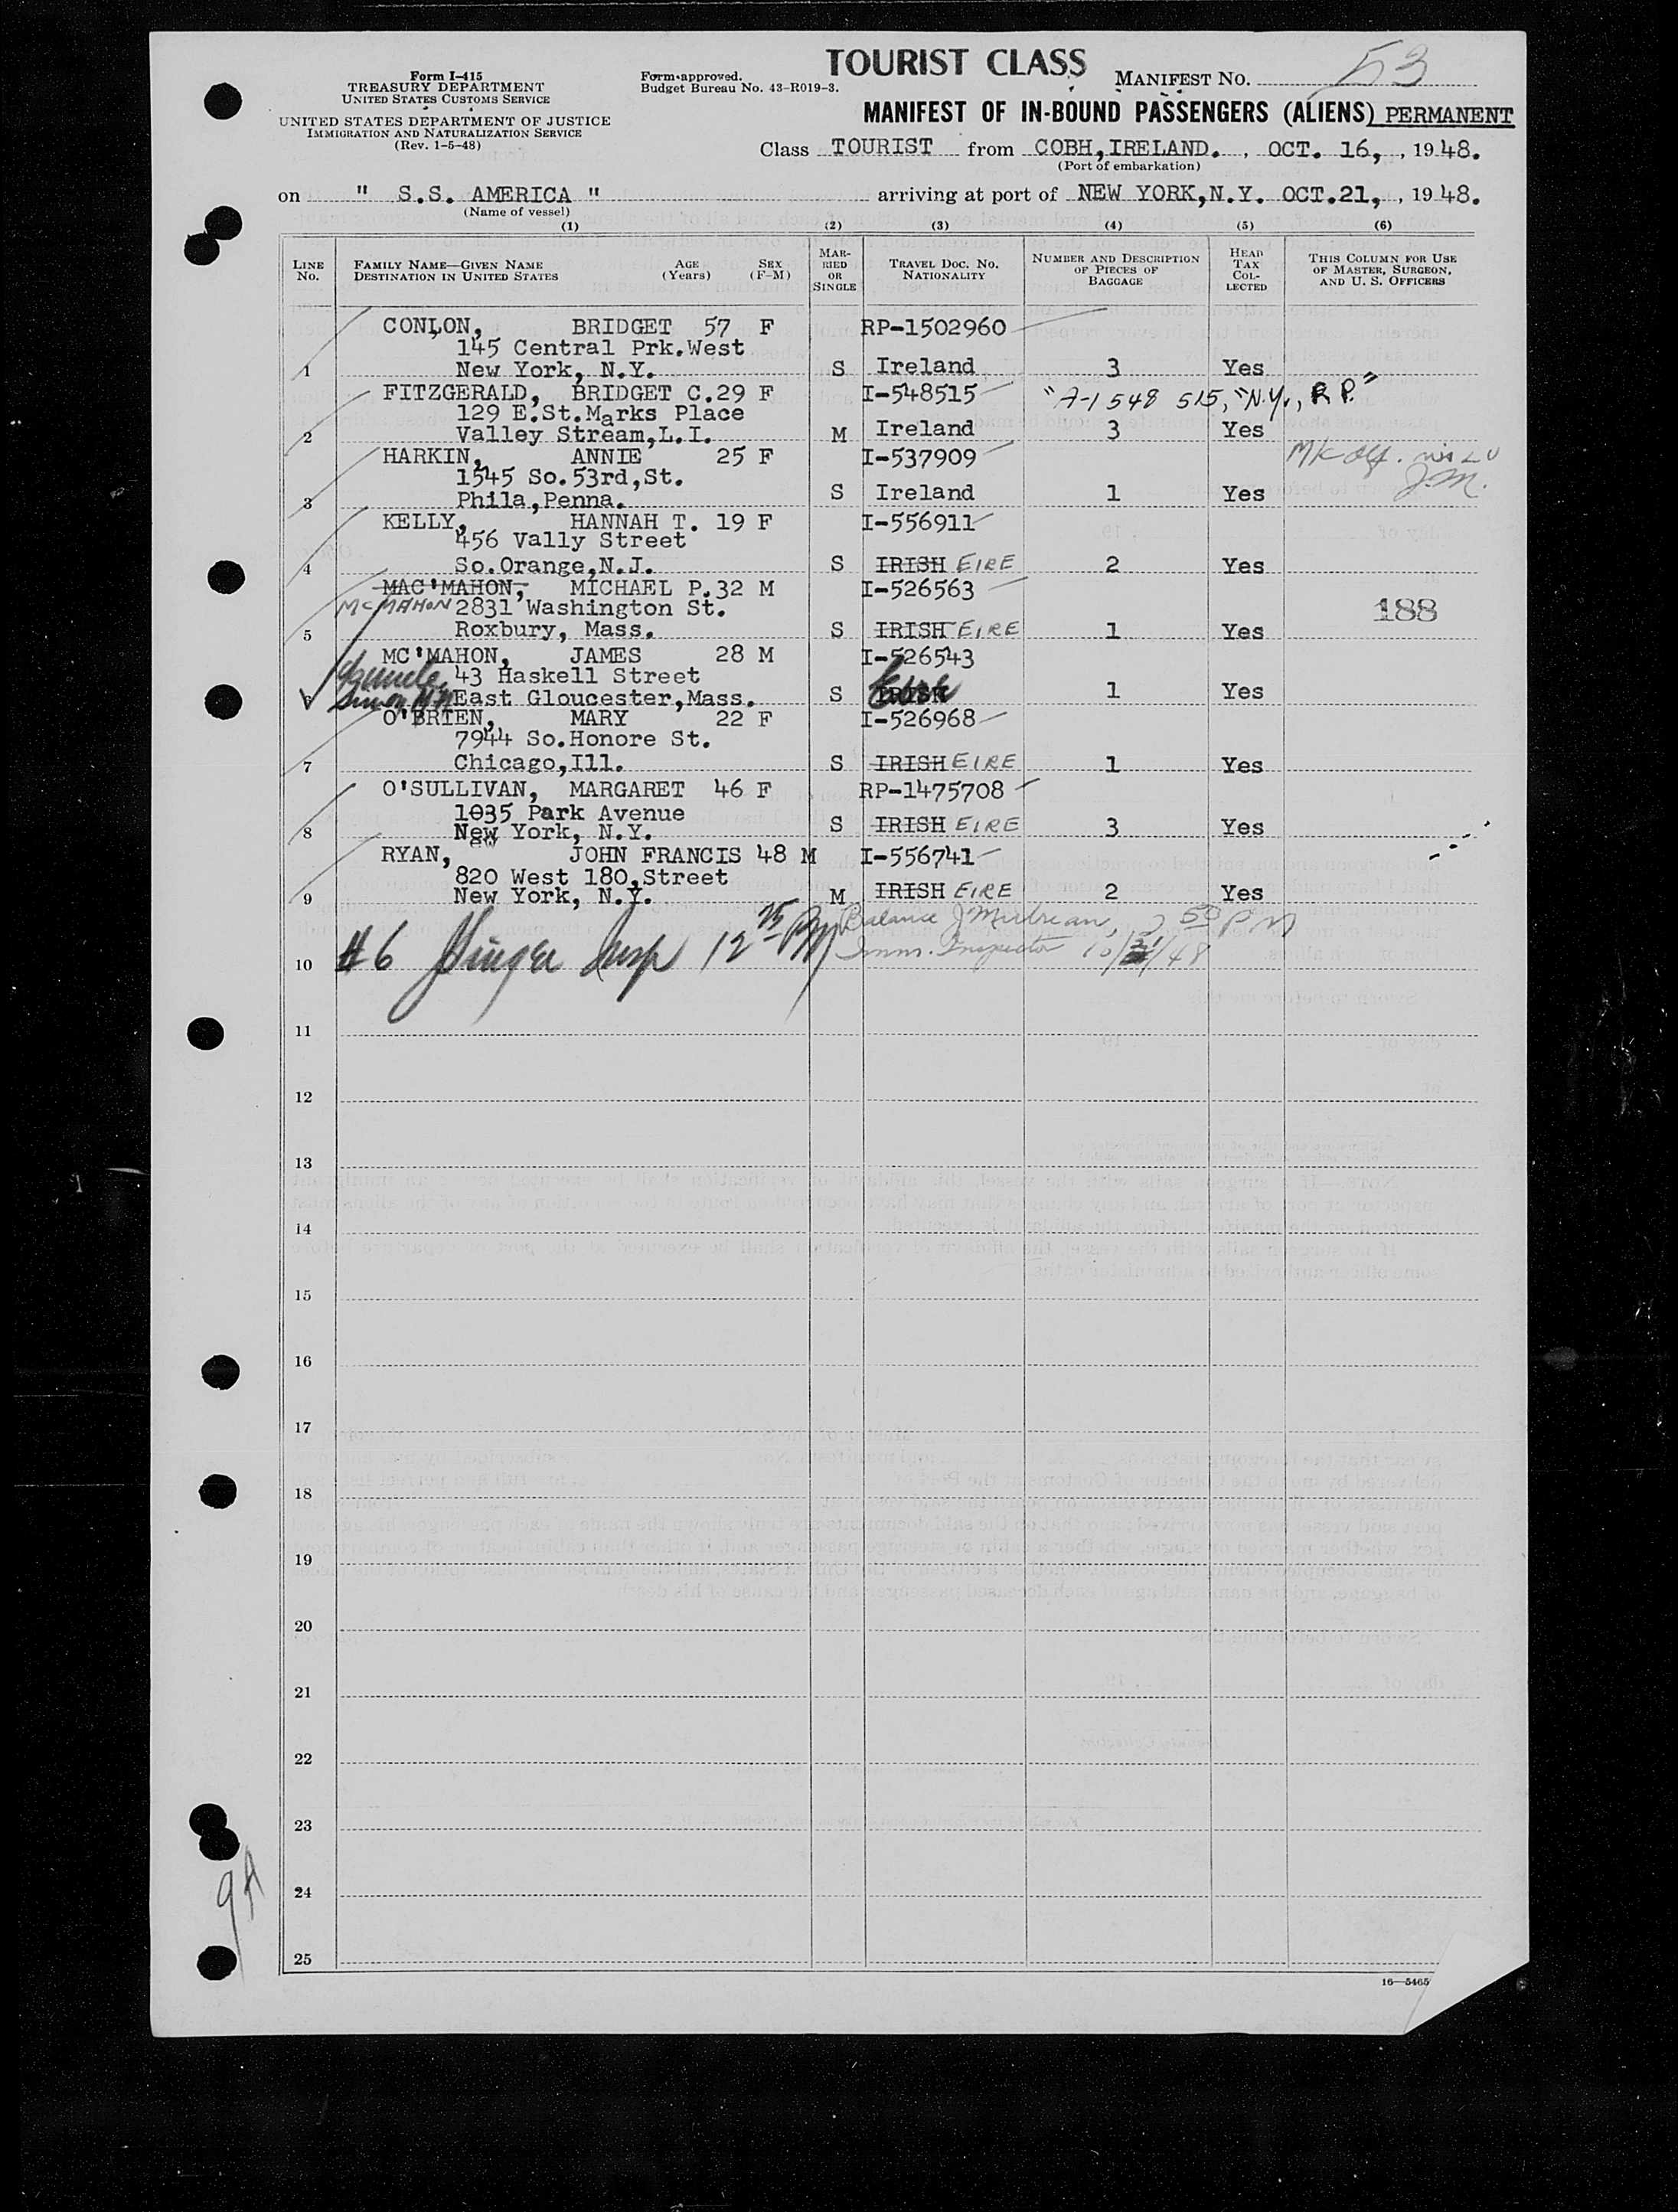 TOURIST CLASS
Form I-415
TREASURY DEPARTMENT
UNITED STATES CUSTOMS SERVICE
UNITED STATES DEPARTMENT OF JUSTICE
IMMIGRATION AND NATURALIZATION SERVICE
(Rev. 1-5-48)
Form approved.
Budget Bureau No. 43-R019-3.
MANIFEST NO. 53
MANIFEST OF IN-BOUND PASSENGERS (ALIENS) PERMANENT
Class TOURIST from COBH, IRELAND. , OCT. 16, , 1948.
(Port of embarkation)
on " S.S. AMERICA " arriving at port of NEW YORK, N.Y. OCT. 21, , 1948.
(Name of vessel)
(1) (2) (3) (4) (5) (6)
LINE No. FAMILY NAME—GIVEN NAME DESTINATION IN UNITED STATES AGE (Years) SEX (F-M) MARRIED OR SINGLE TRAVEL DOC. NO. NATIONALITY NUMBER AND DESCRIPTION OF PIECES OF BAGGAGE HEAD TAX COLLECTED THIS COLUMN FOR USE OF MASTER, SURGEON, AND U. S. OFFICERS
CONLON, BRIDGET 57 F RP-1502960
145 Central Prk. West
1 New York, N.Y. S Ireland 3 Yes
FITZGERALD, BRIDGET C. 29 F I-548515 "A-1 548 515, "N.Y., R P."
129 E. St. Marks Place
2 Valley Stream, L.I. M Ireland 3 Yes
HARKIN, ANNIE 25 F I-537909
1545 So. 53rd, St. J.M.
3 Phila, Penna. S Ireland 1 Yes
KELLY, HANNAH T. 19 F I-556911
456 Vally Street
4 So. Orange, N.J. S IRISH EIRE 2 Yes
MAC'MAHON, MICHAEL P. 32 M I-526563
McMAHON 2831 Washington St. 188
5 Roxbury, Mass. S IRISH EIRE 1 Yes
MC'MAHON, JAMES 28 M I-526543
43 Haskell Street
6 East Gloucester, Mass. S IRISH Eire 1 Yes
O'BRIEN, MARY 22 F I-526968
7944 So. Honore St.
7 Chicago, Ill. S IRISH EIRE 1 Yes
O'SULLIVAN, MARGARET 46 F RP-1475708
1035 Park Avenue
8 New York, N.Y. S IRISH EIRE 3 Yes
RYAN, JOHN FRANCIS 48 M I-556741
820 West 180, Street
9 New York, N.Y. M IRISH EIRE 2 Yes
#6 Singer Insp 12 25 PM
Balance J 2 50 PM
Imm. Inspector 10/21/48
10
11
12
13
14
15
16
17
18
19
20
21
22
23
24
25
16—5465
9A